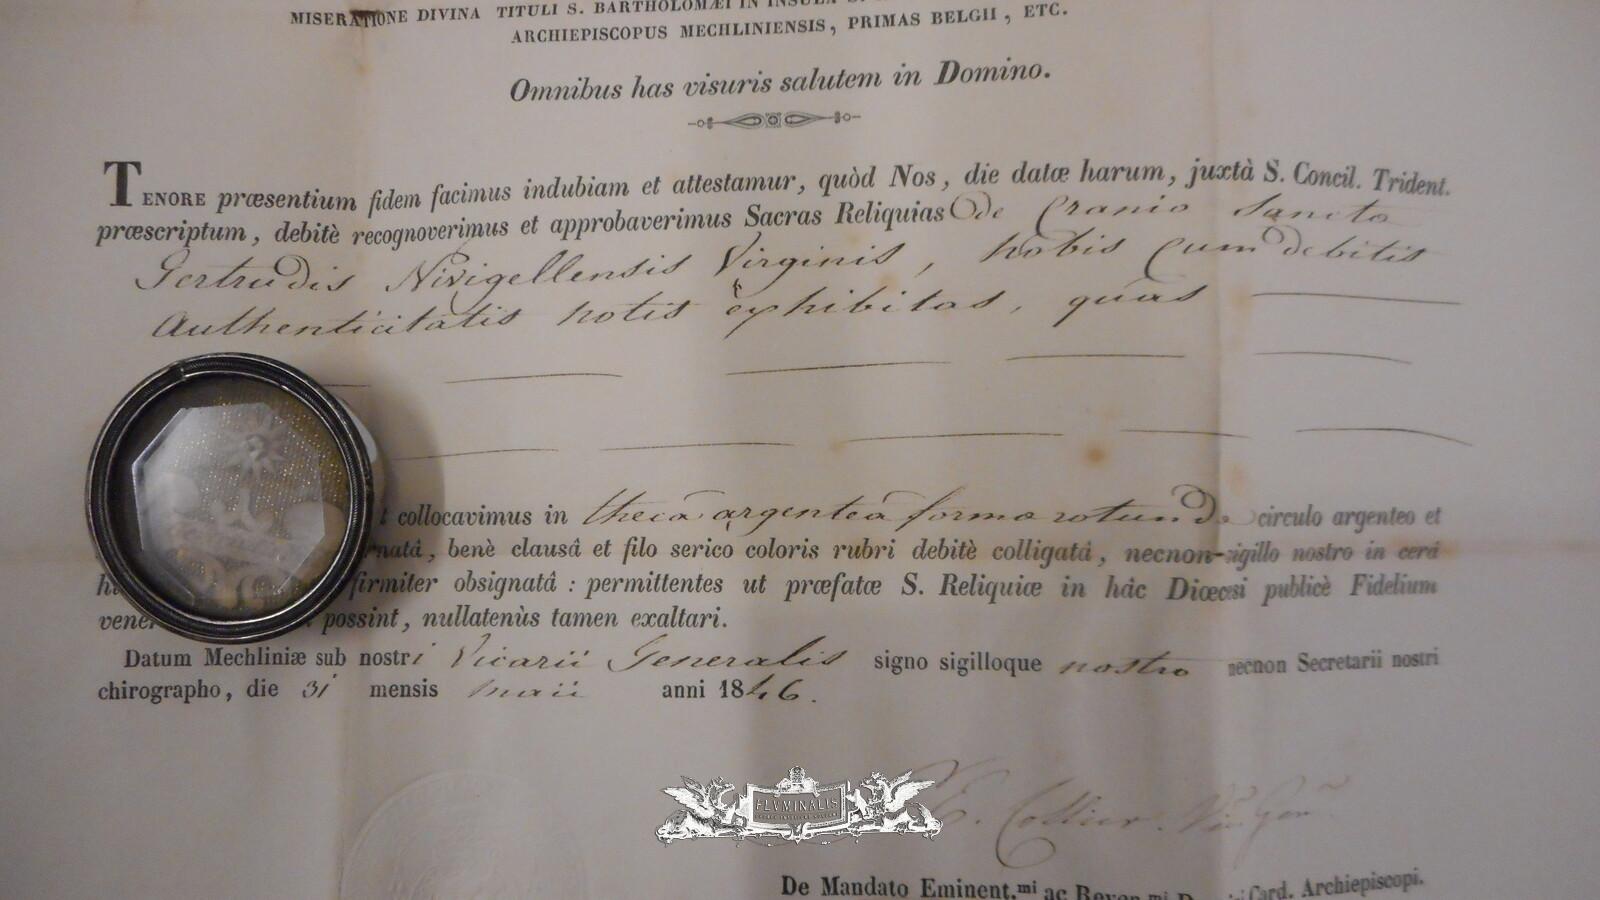 MISERATIONE DIVINA TITULI S. BARTHOLOMÆI IN INSULA
ARCHIEPISCOPUS MECHLINIENSIS, PRIMAS BELGII, ETC.
Omnibus has visuris salutem in Domino.
TENORE præsentium fidem facimus indubiam et attestamur, quòd Nos, die datæ harum, juxtà S. Concil. Trident.
præscriptum, debitè recognoverimus et approbaverimus Sacras Reliquias de Cranio Sancta
Gertrudis Nivigellensis Virginis, nobis cum debitis
Authenticitatis notis exhibitas, quas
collocavimus in thecâ argenteâ formæ rotundæ circulo argenteo et
natâ, benè clausâ et filo serico coloris rubri debitè colligatâ, necnon sigillo nostro in cerâ
firmiter obsignatâ : permittentes ut præfatæ S. Reliquiæ in hâc Diœcesi publicè Fidelium
possint, nullatenùs tamen exaltari.
Datum Mechliniæ sub nostri Vicarii Generalis signo sigilloque nostro necnon Secretarii nostri
chirographo, die 31 mensis maii anni 1846.
FLVMINALIS
De Mandato Eminent.mi ac Card. Archiepiscopi.